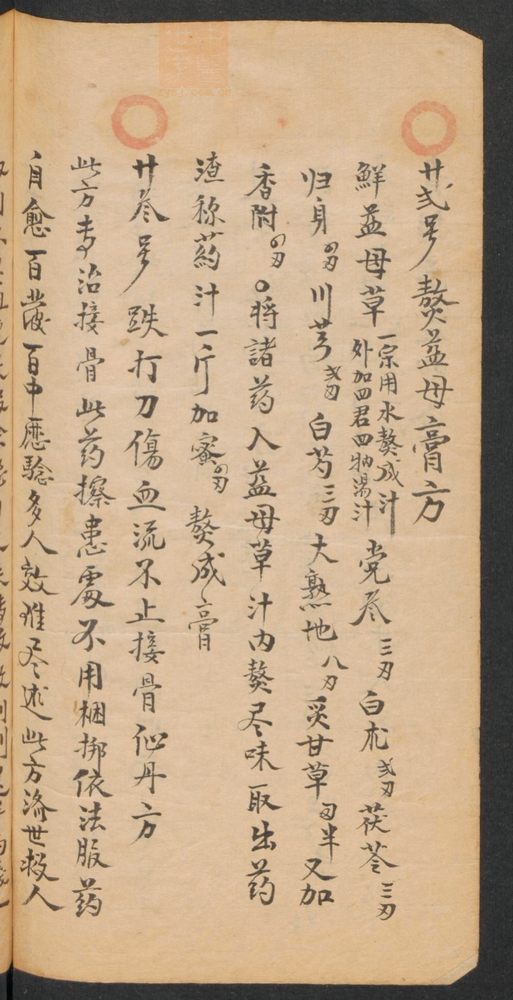 廿弍号 熬益母膏方
鮮益母草 一宗用水熬成汁 外加四君四物湯汁 党参 三刄 白朮 弍刄 茯苓 三刄
归身 四刄 川芎 弍刄 白芍 三刄 大熟地 八刄 炙甘草 刄半 又加
香附 四刄 〇将諸药入益母草汁内熬尽味取出药
渣称药汁一斤加蜜 四刄 熬成膏
廿叁号 跌打刀傷血流不止接骨仙丹方
此方專治接骨此药搽患處不用梱挷依法服药
自愈百發百中應驗多人效难尽述此方済世救人